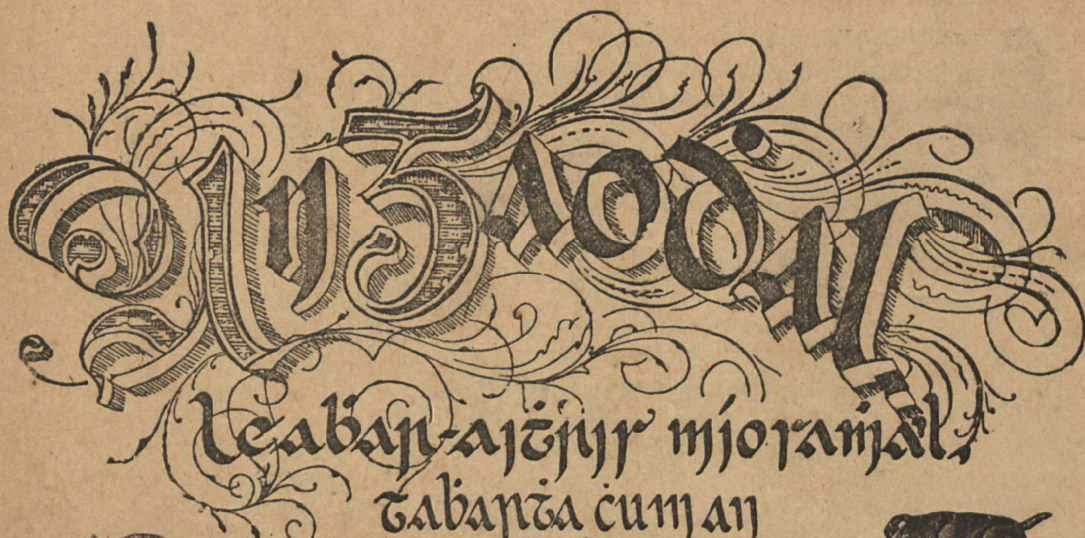 An Gaoḋal
leaḃar-aiṫris míosaṁal,
taḃarṫa ċum an